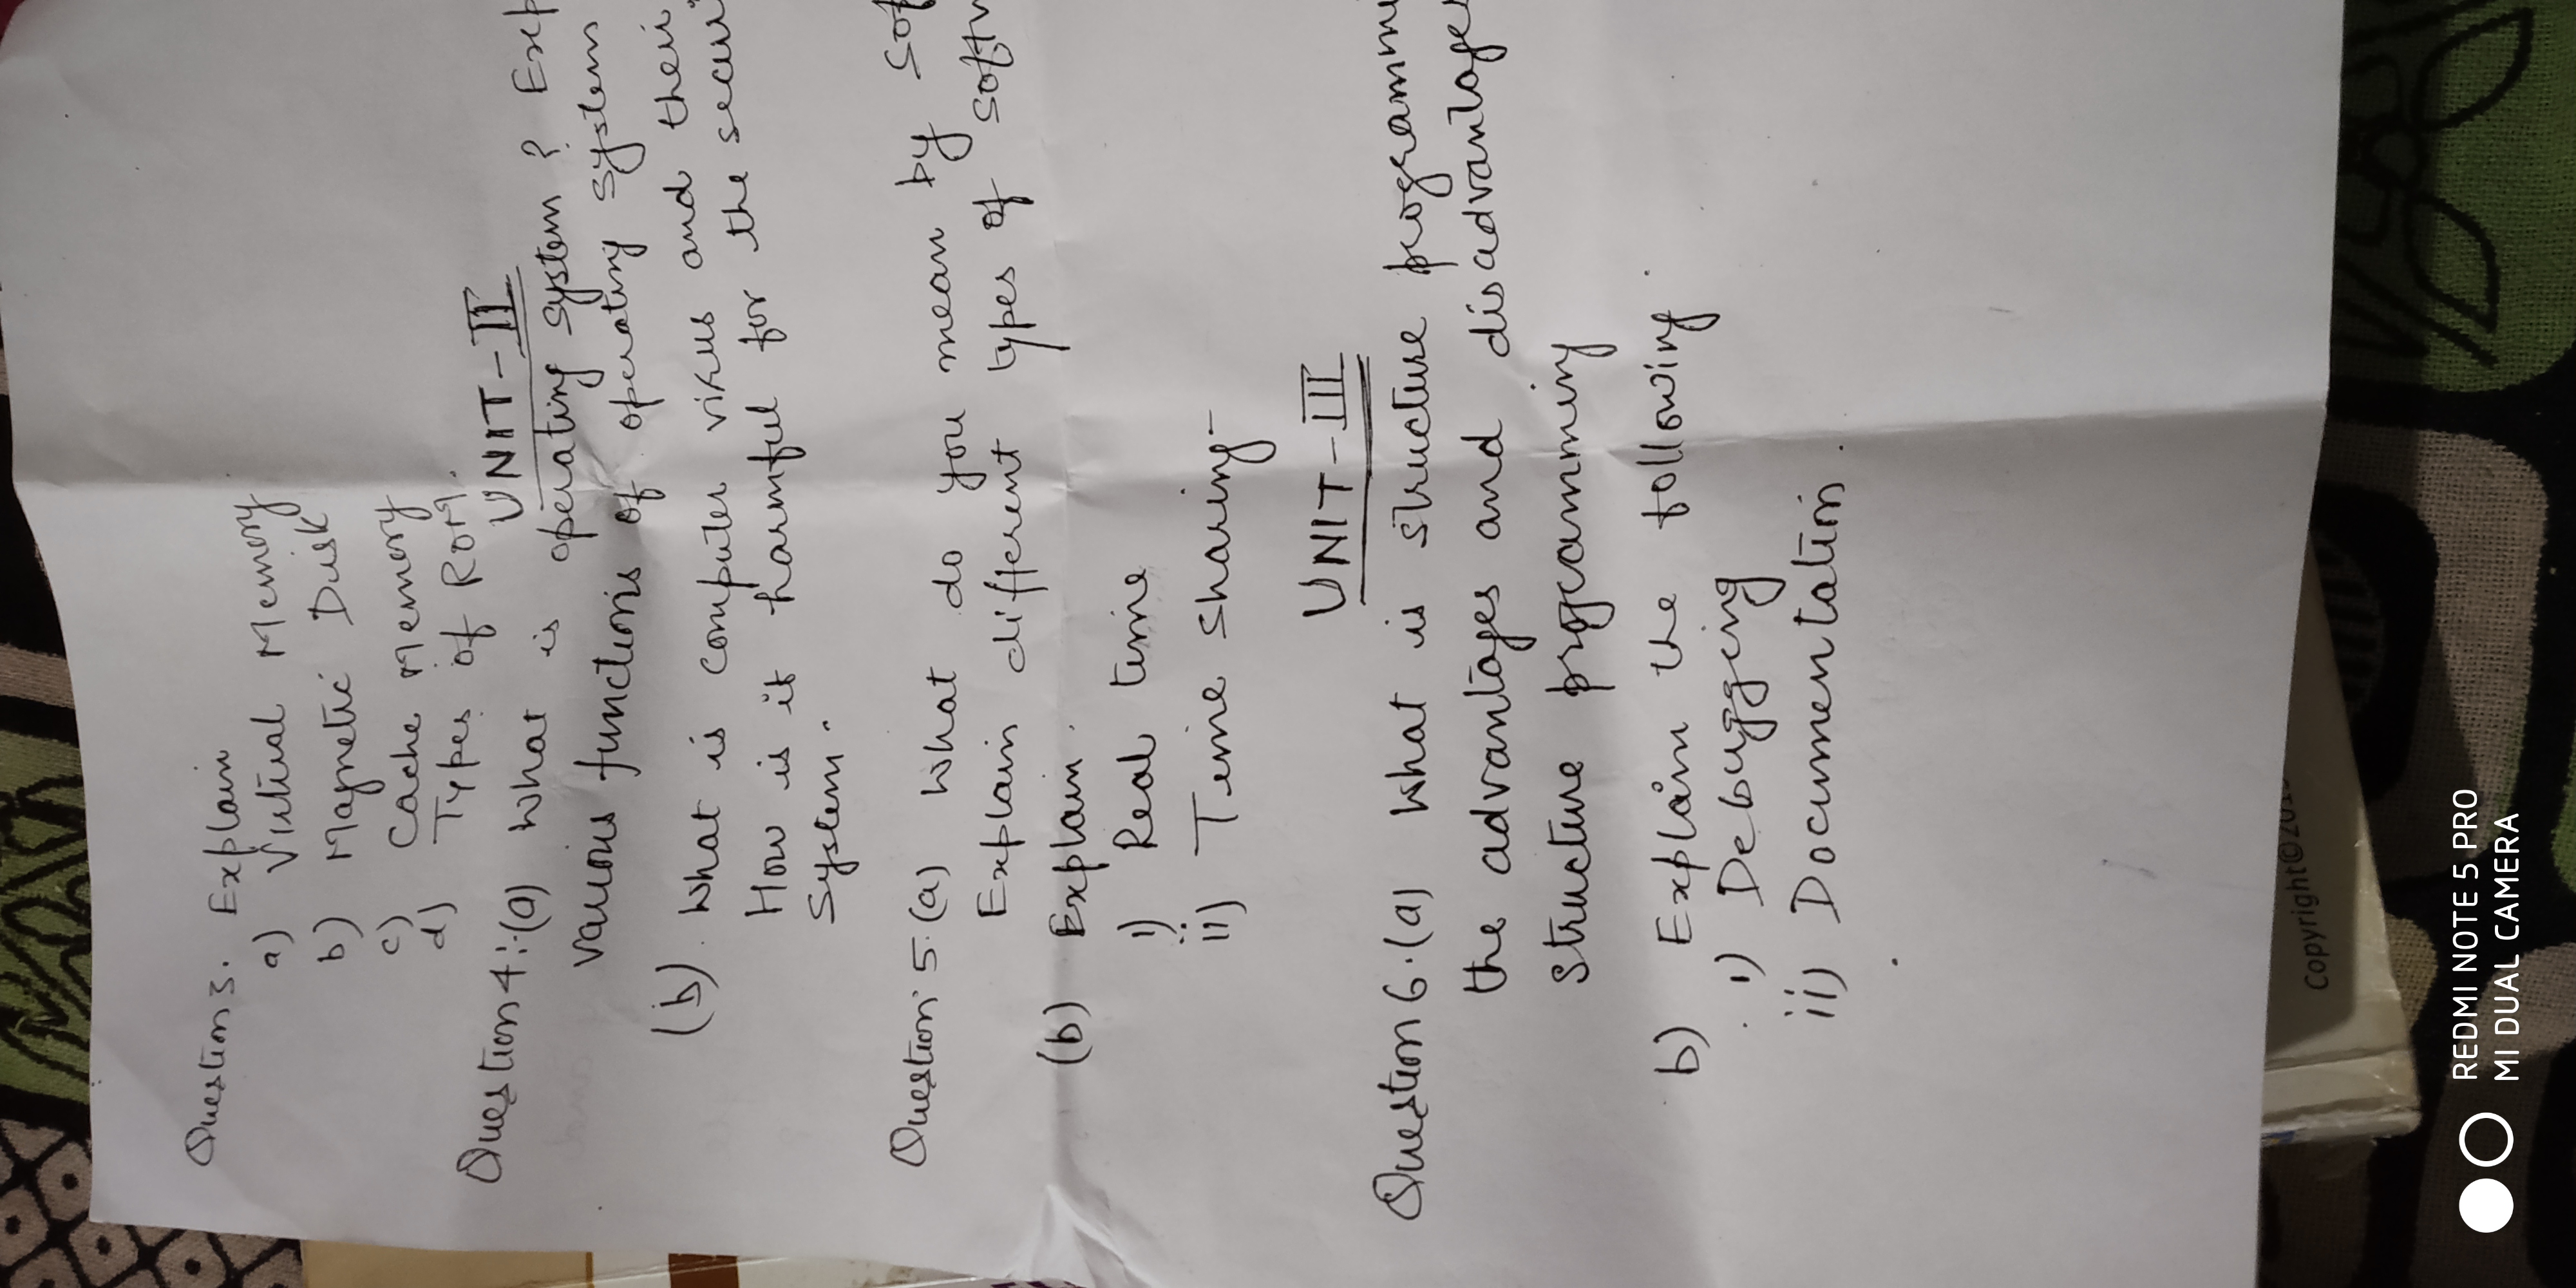 Question 3. Explain
a) Virtual Memory
b) Magnetic Disk
c) Cache Memory
d) Types of ROM.
UNIT-II
Question 4:-(a) What is operating system ? Exp
various functions of operating system
(b). What is computer virus and their
How is it harmful for the securi
System.
Question 5.(a) What do you mean by Sof
Explain different types of softw
(b) Explain.
i) Real time
ii) Time sharing-
UNIT-III
Question 6.(a) What is structure programmi
the advantages and disadvantages
structure programming
b) Explain the following
i) Debugging
ii) Documentation.
Copyright©201
REDMI NOTE 5 PRO
MI DUAL CAMERA